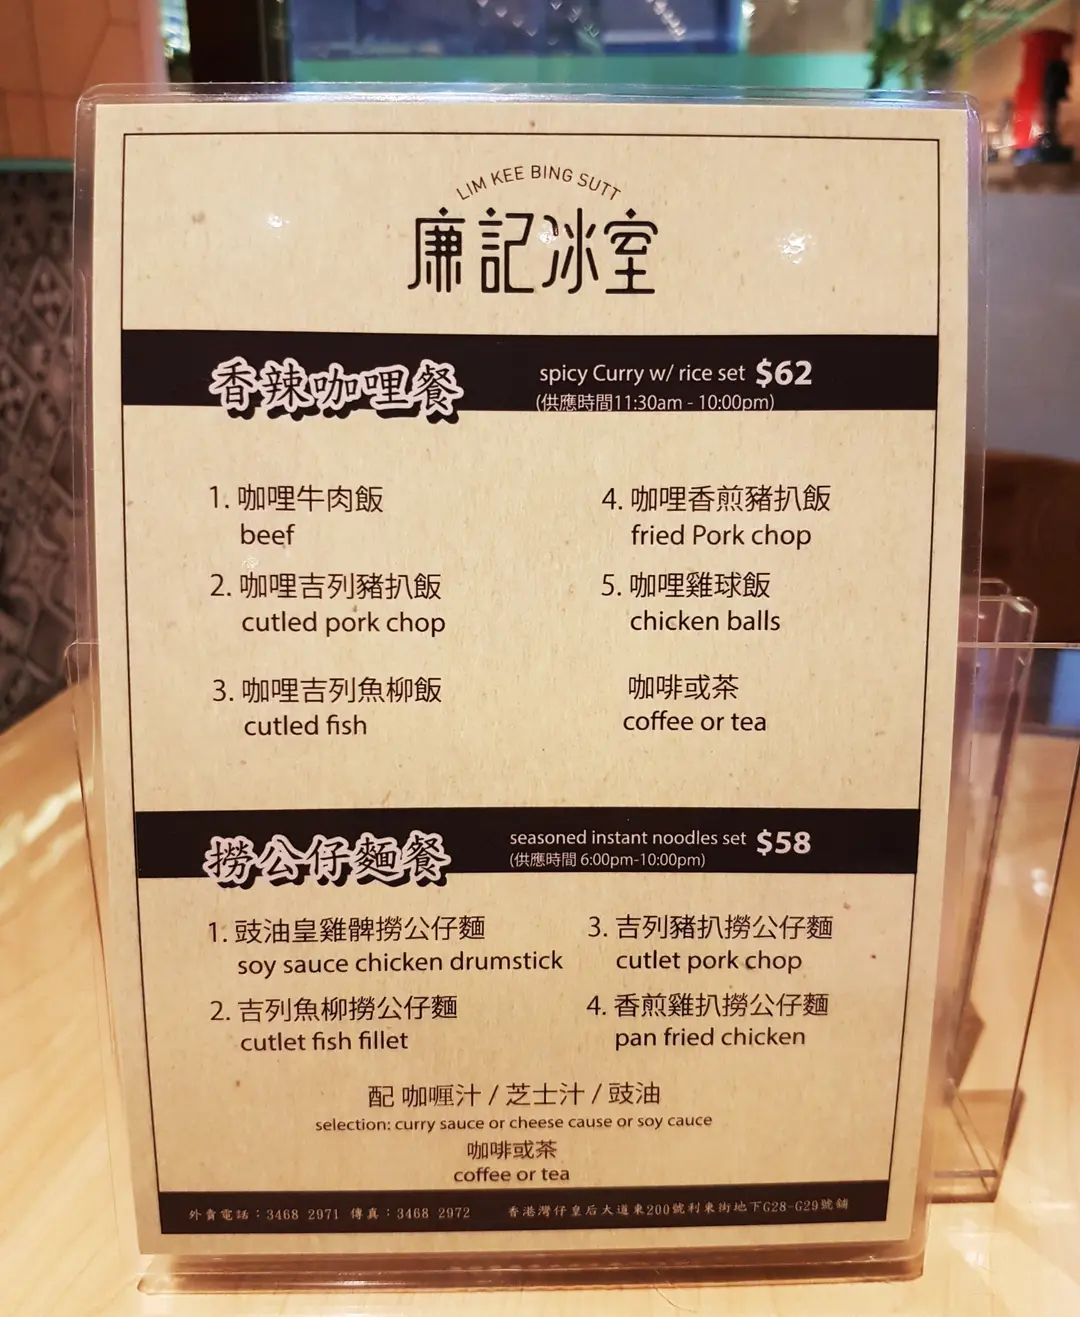 LIM KEE BING SUTT
廉記冰室
香辣咖哩餐
spicy Curry w/ rice set $62
(供應時間11:30am - 10:00pm)
1. 咖哩牛肉飯
beef
2. 咖哩吉列豬扒飯
cutled pork chop
3. 咖哩吉列魚柳飯
cutled fish
4. 咖哩香煎豬扒飯
fried Pork chop
5. 咖哩雞球飯
chicken balls
咖啡或茶
coffee or tea
撈公仔麵餐
seasoned instant noodles set $58
(供應時間 6:00pm-10:00pm)
1. 豉油皇雞髀撈公仔麵
soy sauce chicken drumstick
2. 吉列魚柳撈公仔麵
cutlet fish fillet
3. 吉列豬扒撈公仔麵
cutlet pork chop
4. 香煎雞扒撈公仔麵
pan fried chicken
配 咖喱汁 / 芝士汁 / 豉油
selection: curry sauce or cheese cause or soy cauce
咖啡或茶
coffee or tea
外賣電話：3468 2971 傳真：3468 2972 香港灣仔皇后大道東200號利東街地下G28-G29號舖